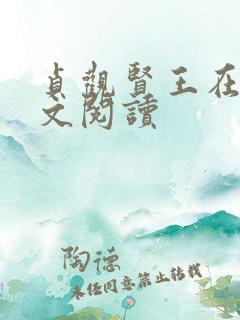 貞觀賢王在
文閱讀
陶德
未经同意禁止转载